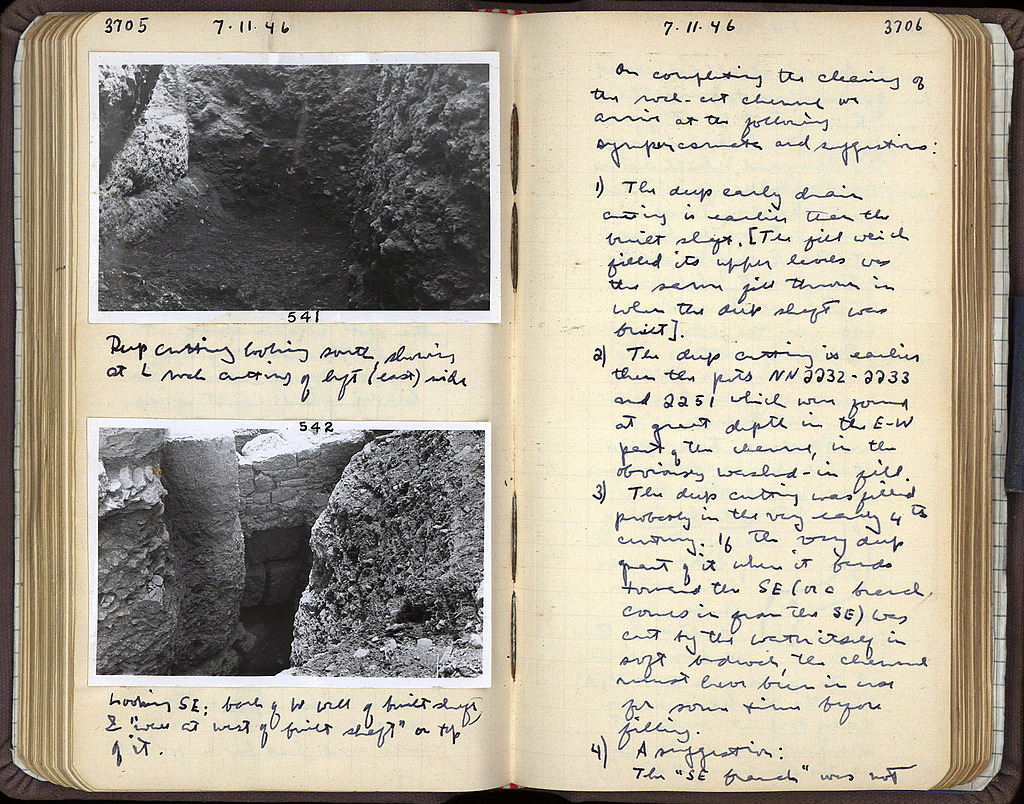 3705 7·11·46
541
Deep cutting looking south, showing
at L rock cutting of left (east) side
542
Looking SE: back of W wall of built shaft
& "wall at west of built shaft" on top
of it.
7·11·46 3706
On completing the clearing of
the rock-cut channel we
arrive at the following
and suggestions:
1) The deep early drain
cutting is earlier than the
built shaft. [The fill which
filled its upper levels was
the same fill thrown in
when the deep shaft was
built].
2) The deep cutting is earlier
than the pots NN2232-2233
and 2251 which were found
at great depth in the E-W
part of the channel, in the
obviously washed-in fill.
3) The deep cutting was filled
probably in the very early 4th
century. If the very deep
part of it where it bends
toward the SE (or a branch
comes in from the SE) was
cut by the water itself in
soft bedrock, the channel
must have been in use
for some time before
filling.
4) A suggestion:
The "SE branch" was not